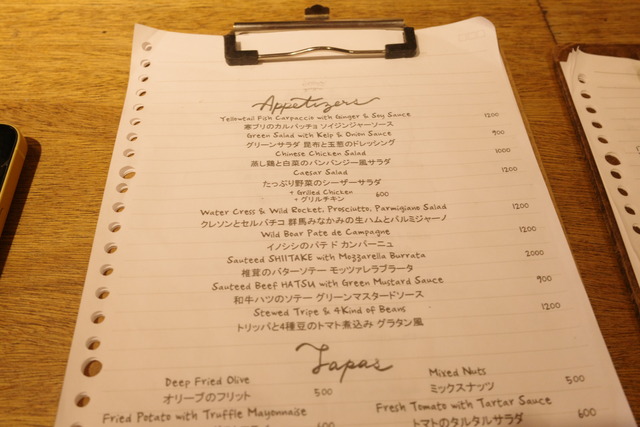 Appetizers
Yellowtail Fish Carpaccio with Ginger & Soy Sauce 1200
寒ブリのカルパッチョ ソイジンジャーソース
Green Salad with Kelp & Onion Sauce 900
グリーンサラダ 昆布と玉葱のドレッシング
Chinese Chicken Salad 1000
蒸し鶏と白菜のバンバンジー風サラダ
Caesar Salad 1200
たっぷり野菜のシーザーサラダ
+ Grilled Chicken 600
+ グリルチキン
Water Cress & Wild Rocket, Prosciutto, Parmigiano Salad 1200
クレソンとセルバチコ 群馬みなかみの生ハムとパルミジャーノ
Wild Boar Pate de Campagne 1200
イノシシのパテ ド カンパーニュ
Sauteed SHIITAKE with Mozzarella Burrata 2000
椎茸のバターソテー モッツァレラブラータ
Sauteed Beef HATSU with Green Mustard Sauce 900
和牛ハツのソテー グリーンマスタードソース
Stewed Tripe & 4Kind of Beans 1200
トリッパと4種豆のトマト煮込み グラタン風
Tapas
Deep Fried Olive 500
オリーブのフリット
Mixed Nuts 500
ミックスナッツ
Fried Potato with Truffle Mayonnaise 600
Fresh Tomato with Tartar Sauce 600
トマトのタルタルサラダ